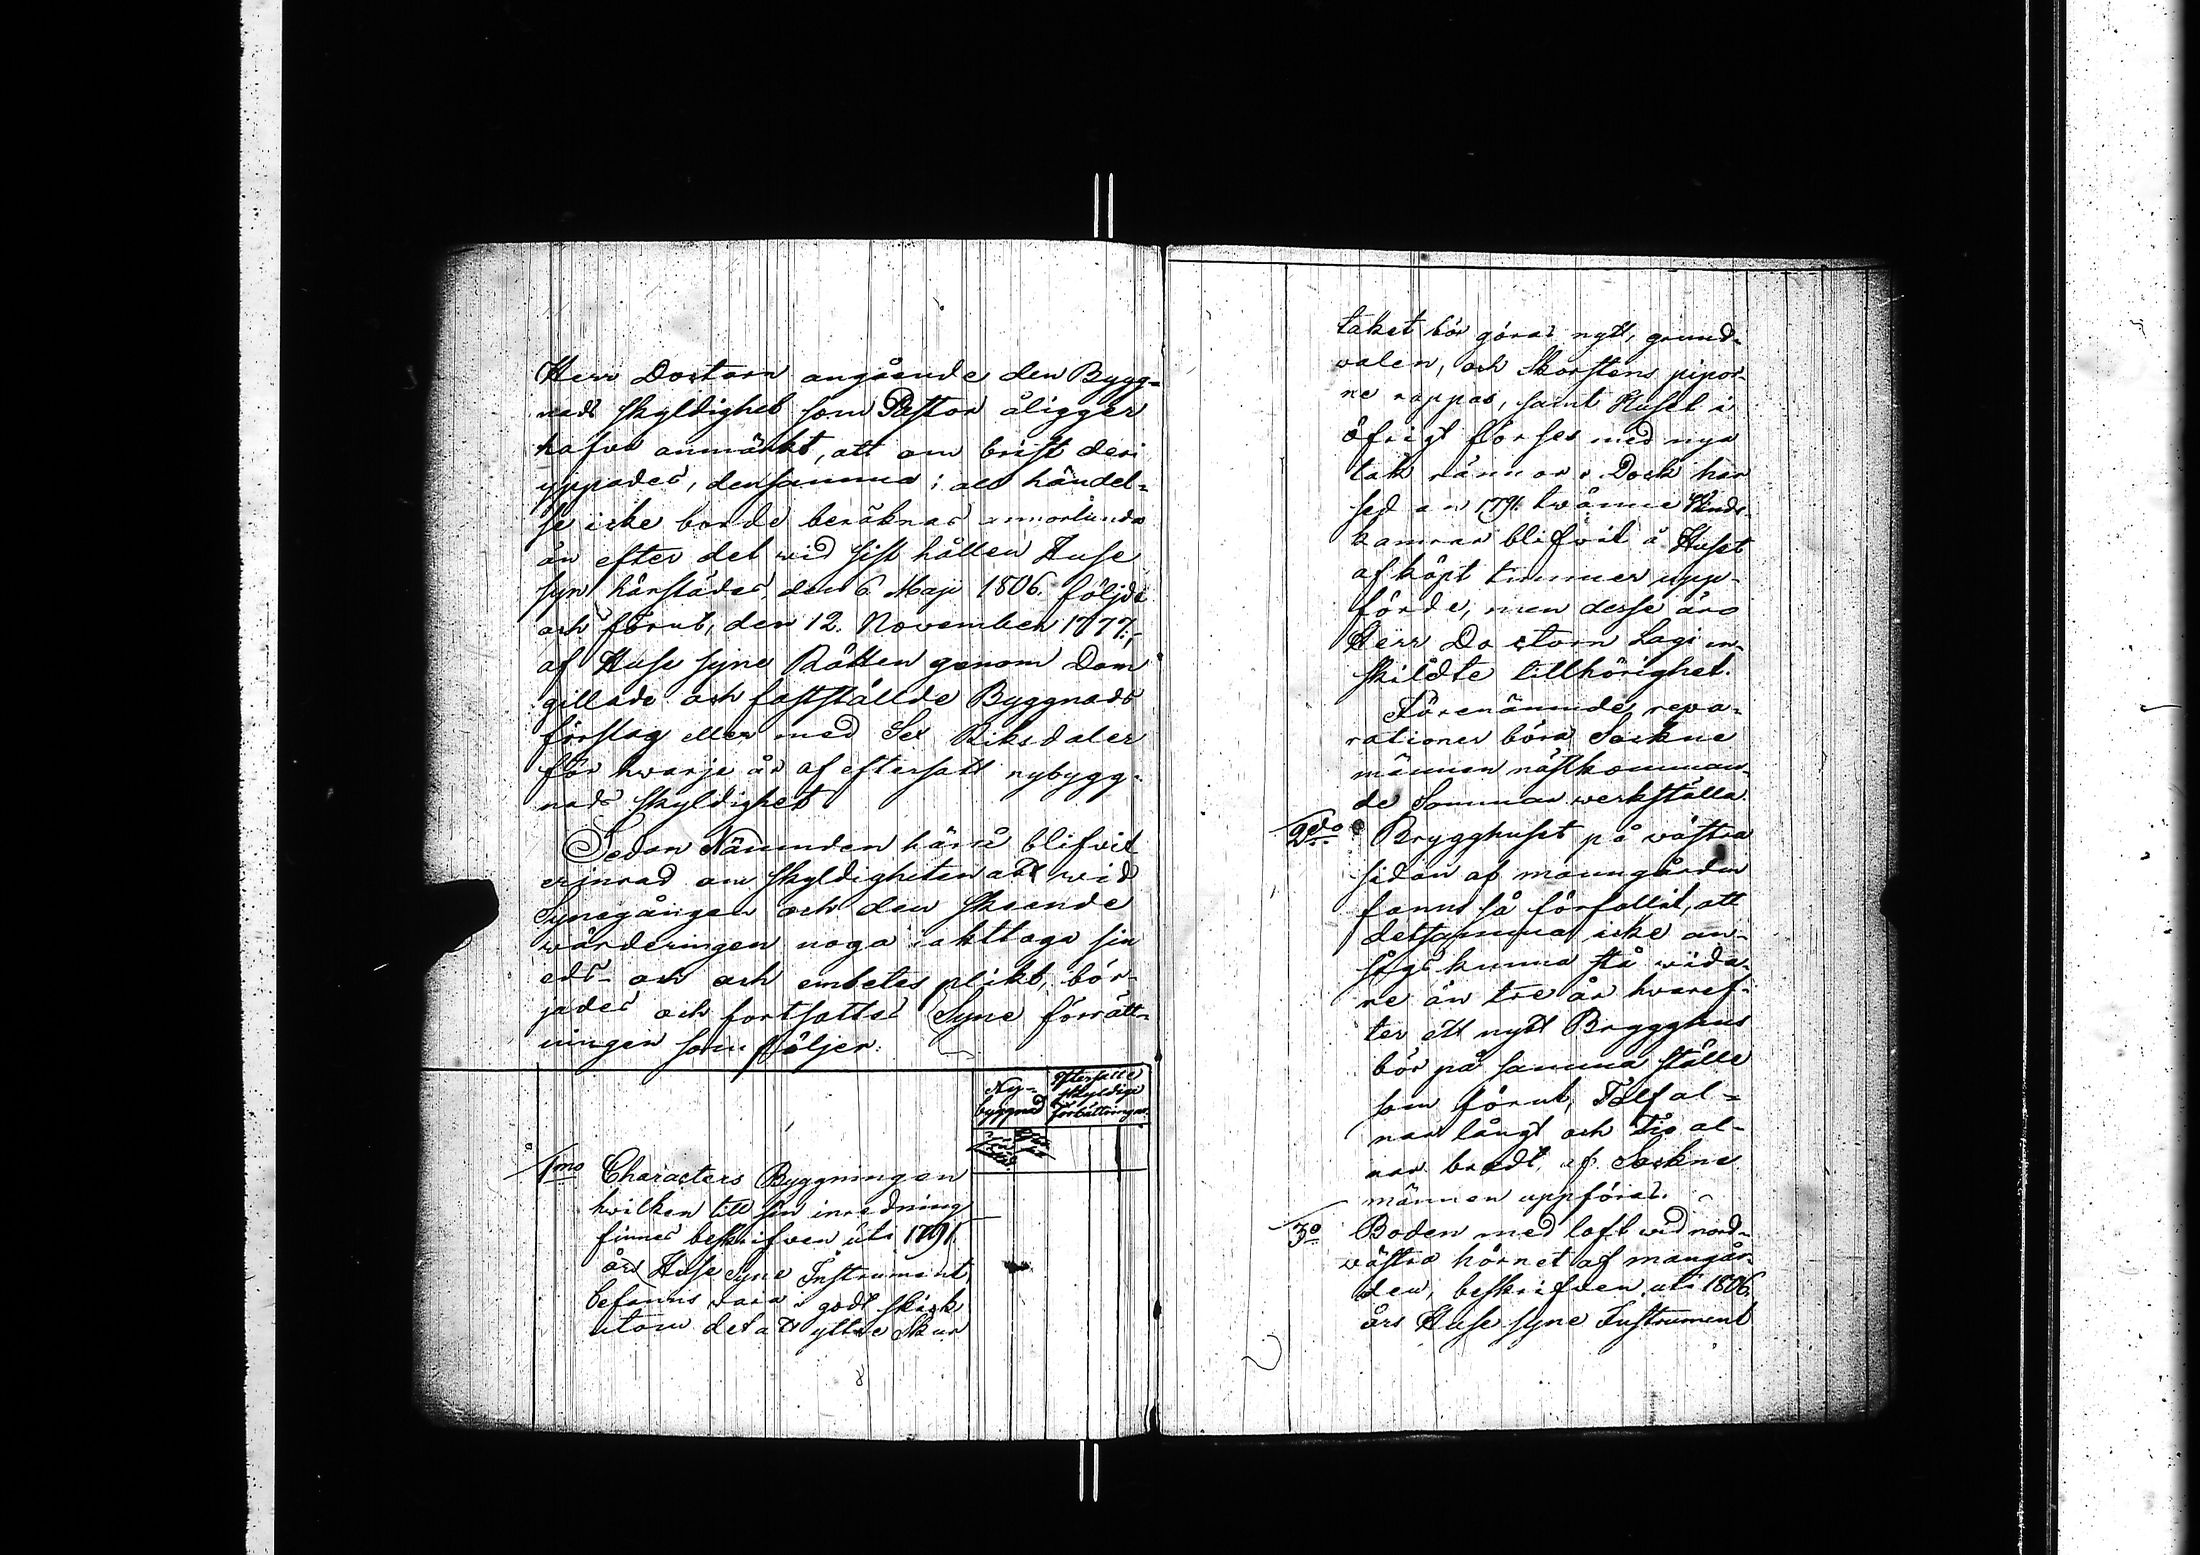 Herr Doctorn angående den Bygg-
nads skyldighet som Pastor åligger
hafva anmärkt, att om brist deri
yppades, densamma i all händel-
se icke borde beräknas annorlunda
än efter det wid sist hållen Huse
syn härstädes den 6 Maji 1806. följde
och förut, den 12. November 1777.-
af Huse syne Rätten genom Dom
gillade och fastställde Byggnads
förslag eller med Sex Riksdaler
för hwarje år af eftersatt nybygg-
nads skyldighet
Sedan Nämnden härå blifvit
erinrad om skyldigheten att wid
Synegången och den skeende
wärderingen noga iakttaga sin
eds- och embetes plikt, bör-
jades och fortsattes Syne förrätt-
ningen som följer:
Ny-
byggnad
eftersatte
skyldige
förbättringar
1mo Characters Byggningen
hvilken till sin inredning
finnes beskrifven uti 1791
års Huse syne Instrument,
befanns vara i godt skick
utom det att yttre Skur
taket bör göras nytt, grund-
valen, och Skorstens pipor-
ne rappas, samt Huset i
öfrigt förses med nya
tak rännor. Dock har
sed an 1791. twänne Winds-
kamrar blifvit å Huset
af köpt timmer upp-
förde, men desse äro
Herr Doctorn Lagi en-
skildte tillhörighet.
Förenämnde repa-
rationer böra Sockne
männen nästkomman-
de Sommar werkställa.
2do Brygghuset på västra
sidan af manngården
fanns så förfallit, att
detsamma icke an-
sågs kunna stå wida-
re än tre år hvaref-
ter ett nytt Brygghus
bör på samma ställe
som förut, Tolf al-
nar långt och Tio al-
nar bredt, af Sockne
männen uppföras.
3o Boden med loft wid nord-
västra hörnet af mangår-
den, beskrifven uti 1806
års Huse syne Instrument